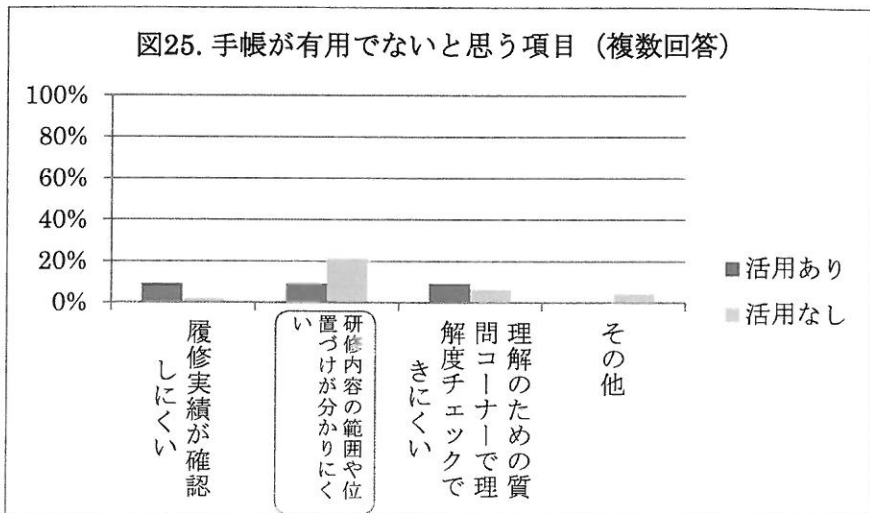 図25. 手帳が有用でないと思う項目（複数回答）
100%
80%
60%
40%
20%
0%
活用あり
活用なし
履修実績が確認
しにくい
研修内容の範囲や位
置づけが分かりにく
い
理解のための質
問コーナーで理
解度チェックで
きにくい
その他